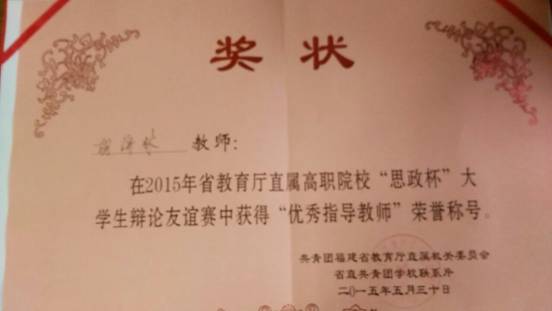 奖状
教师：
在2015年省教育厅直属高职院校“思政杯”大
学生辩论友谊赛中获得“优秀指导教师”荣誉称号。
共青团福建省教育厅直属机关委员会
省直共青团学校联系片
二〇一五年五月三十日